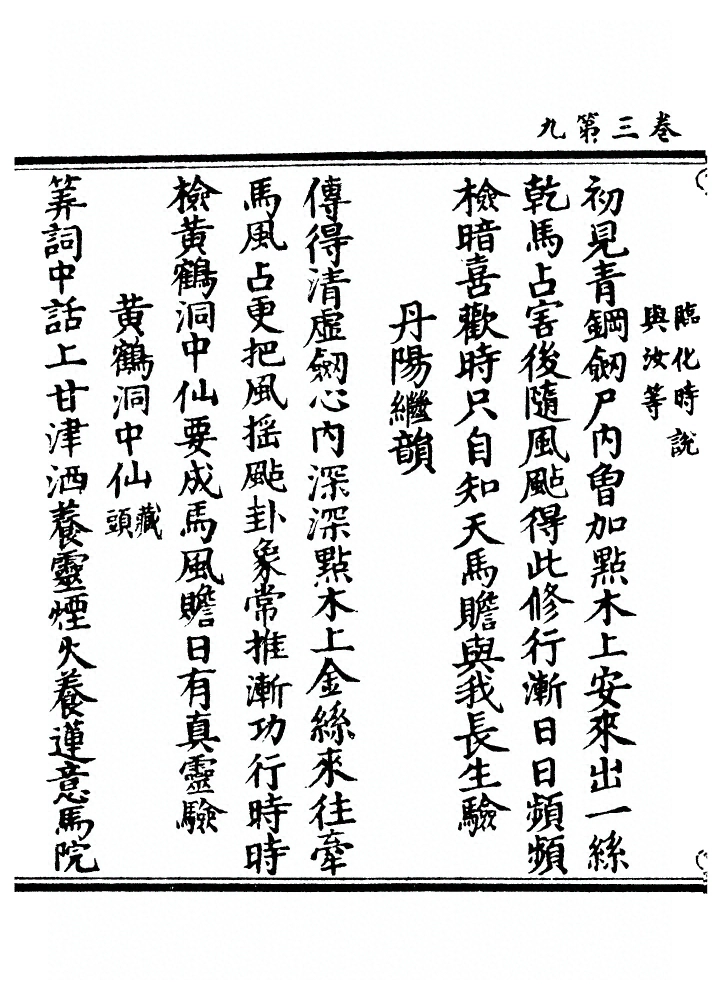 卷三第九
臨化時說
與汝等
初見青鋼劒尸內曾加點木上安來出一絲
乾馬占害後隨風颭得此修行漸日日頻頻
檢暗喜歡時只自知天馬瞻與我長生驗
丹陽繼韻
傳得清虛劒心內深深點木上金絲來往牽
馬風占更把風搖颭卦象常推漸功行時時
檢黃鶴洞中仙要成馬風瞻日有真靈驗
黃鶴洞中仙藏
頭
筭詞中話上甘津洒養靈煙火養蓮意馬院